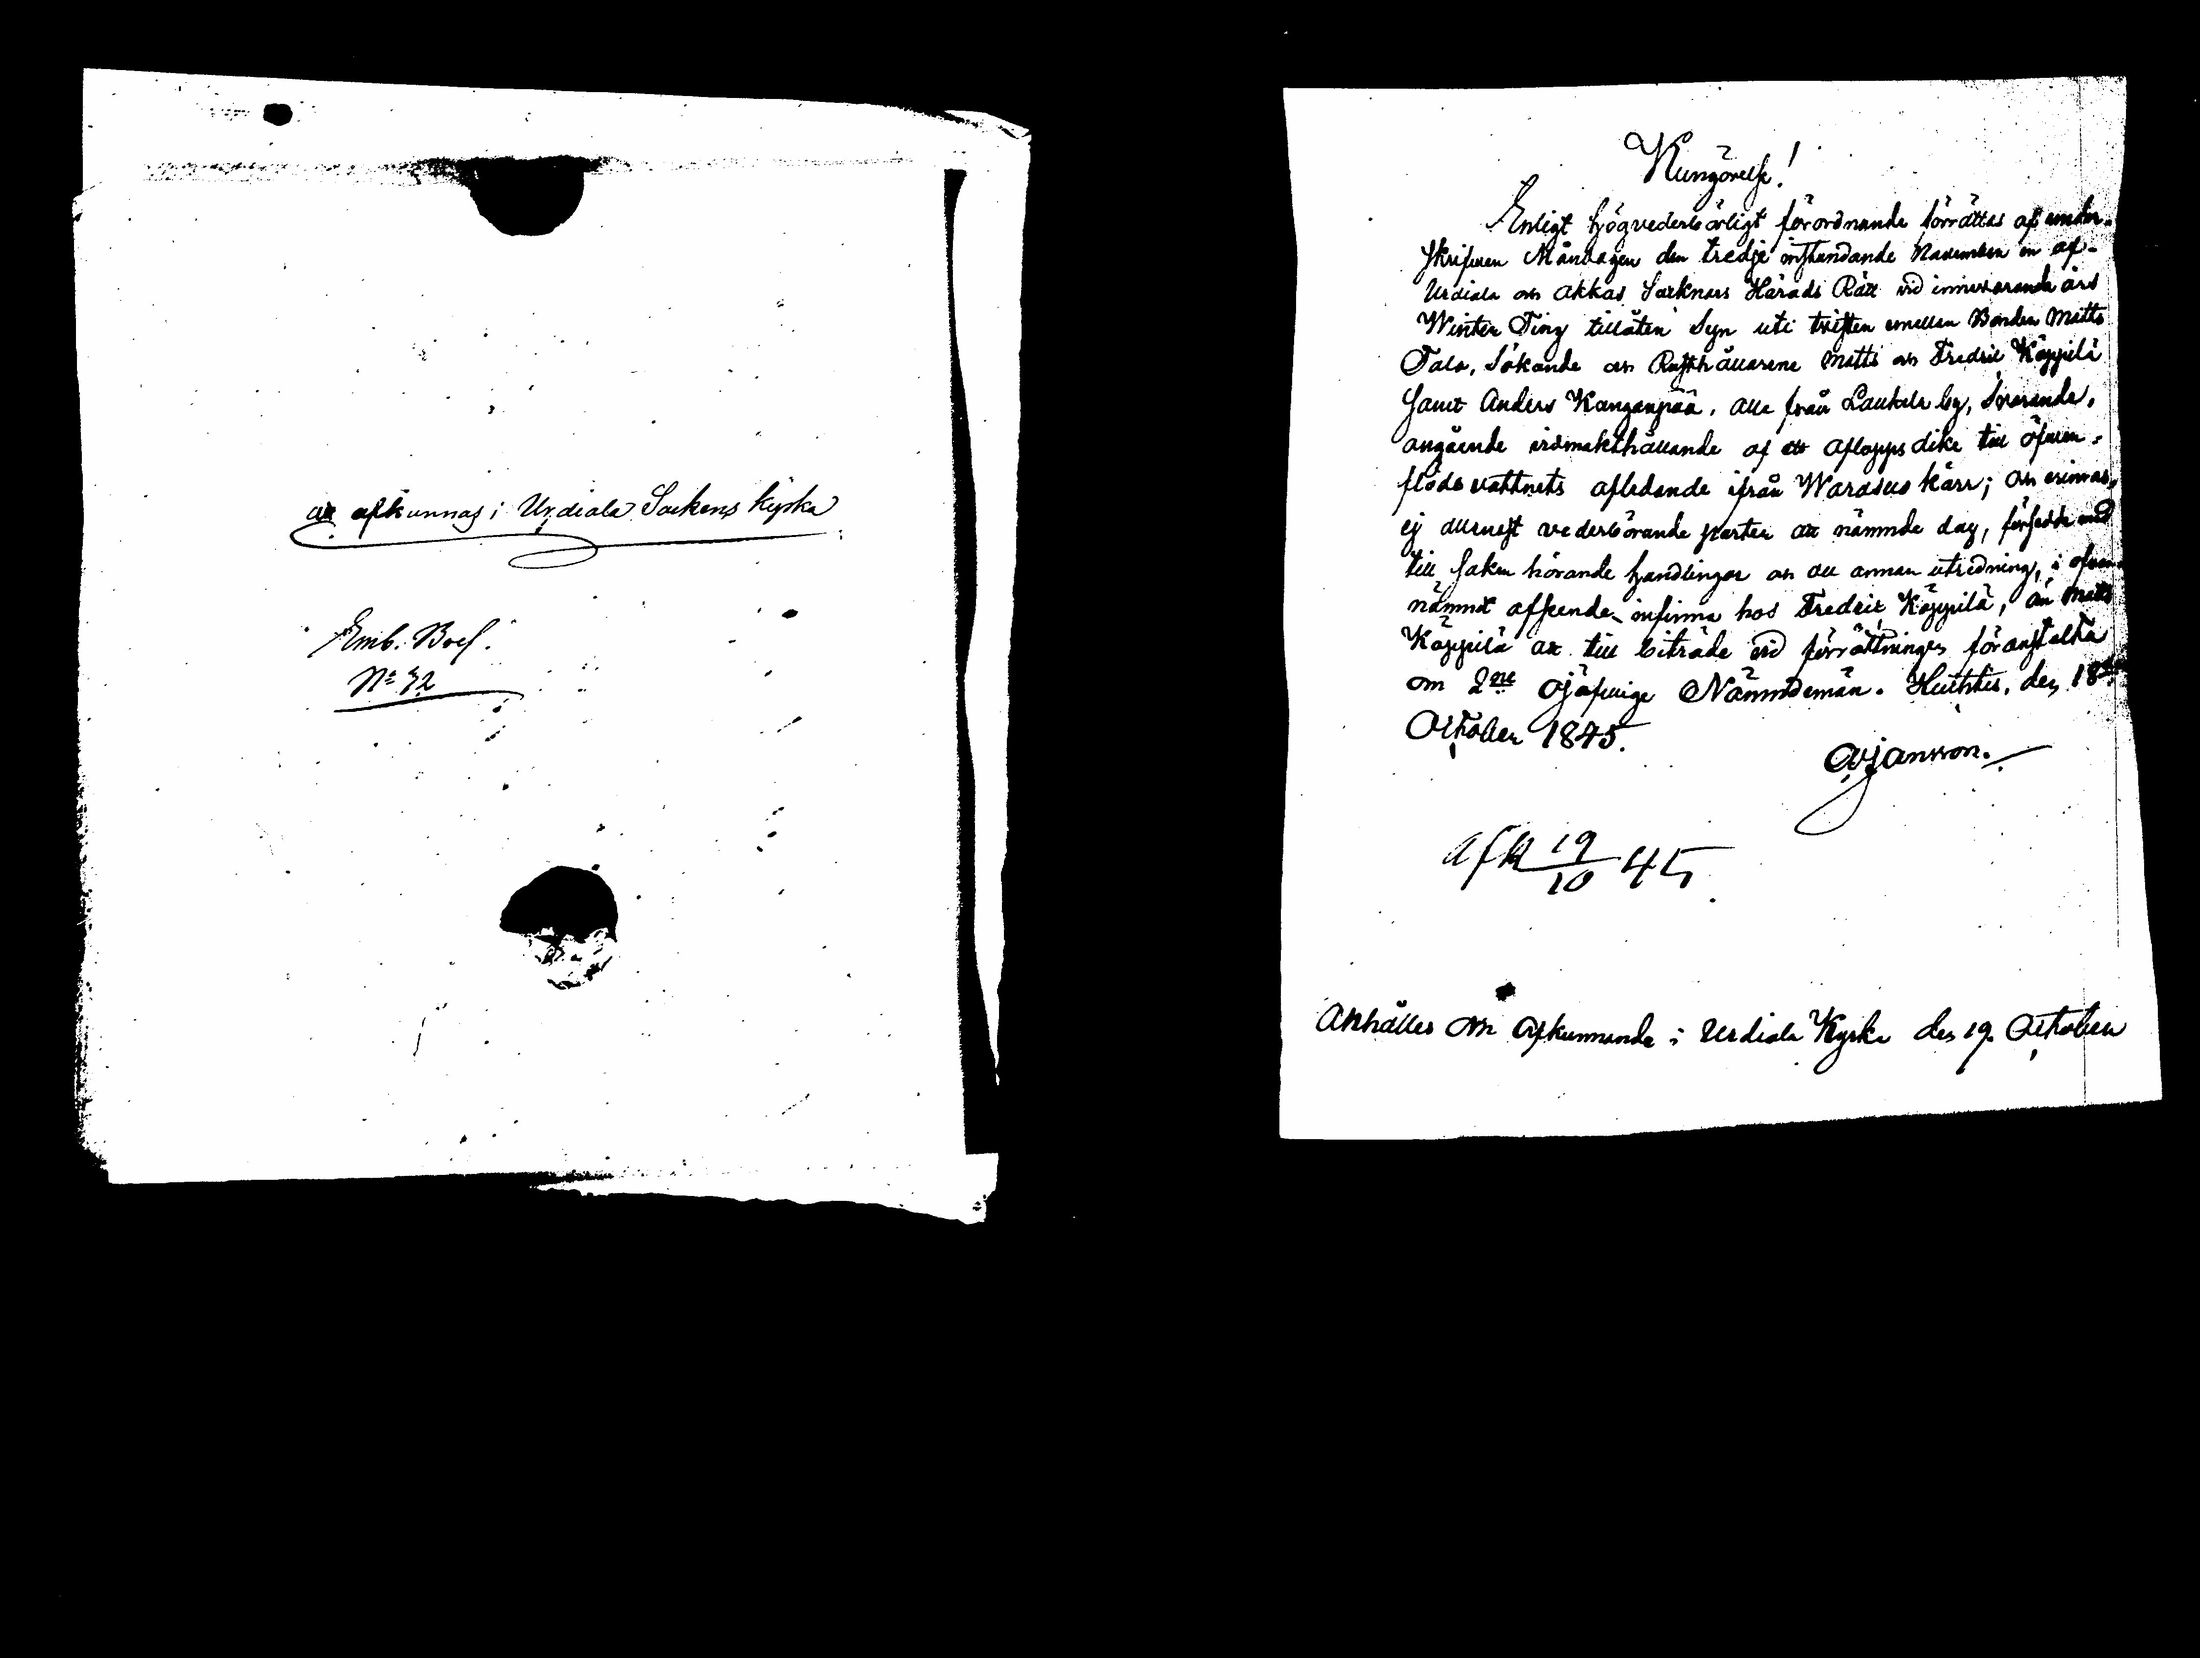 att afkunnas i Urdiala Sockens kyrka
Emb. Bref.
No 72
Kungörelse!
Enligt högvederbörligt förordnande förrättas af under-
skrifven Måndagen den tredje instundande November en af
Urdiala och Akkas Socknars Härads Rätt vid innevarande års
Winter Ting tillåten Syn uti tvisten emellan Bonden Matts
Talo, Sökande och Rusthållarene Matts och Fredric Käppilä
samt Anders Kanganpää, alla från Laukela by, Svarande,
angående vidmakthållande af ett aflopps dike till öfver-
flöds vattnets afledande ifrån Warasuo kärr; och erinras,
ej allenast vederbörande parter att nämnde dag, försedde med
till saken hörande handlingar och all annan utredning, i ofvan-
nämnt afseende infinna hos Fredric Käppilä, än Matts
Käppilä att till biträde vid förrättningen föranstalta
om 2ne ojäfvige Nämndemän. Huhtis, den 18de
October 1845.
Jansson.
Afk 19/10 45
Anhålles om Afkunnande i Urdiala Kyrka den 19 October